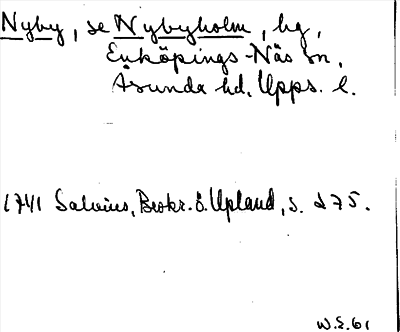 Nyby, se Nybyholm, hg,
Enköpings-Näs sn,
Åsunda hd, Upps. l.
1741 Salvius, Beskr. ö. Upland, s. 275.
W.E. 61